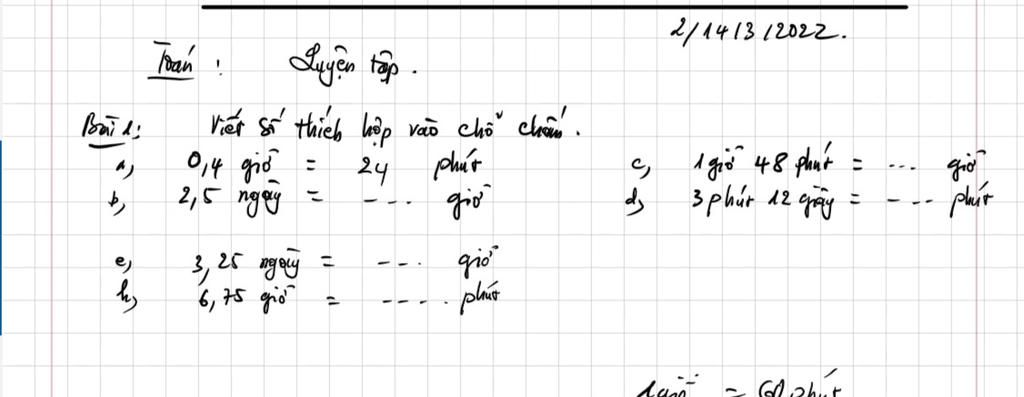 2/14/3/2022.
Toán : Luyện tập.
Bài 1: Viết số thích hợp vào chỗ chấm.
a, 0,4 giờ = 24 phút c, 1 giờ 48 phút = ... giờ
b, 2,5 ngày = .... giờ d, 3 phút 12 giây = .... phút
e, 3,25 ngày = .... giờ
h, 6,75 giờ = ..... phút
1 giờ = 60 phút